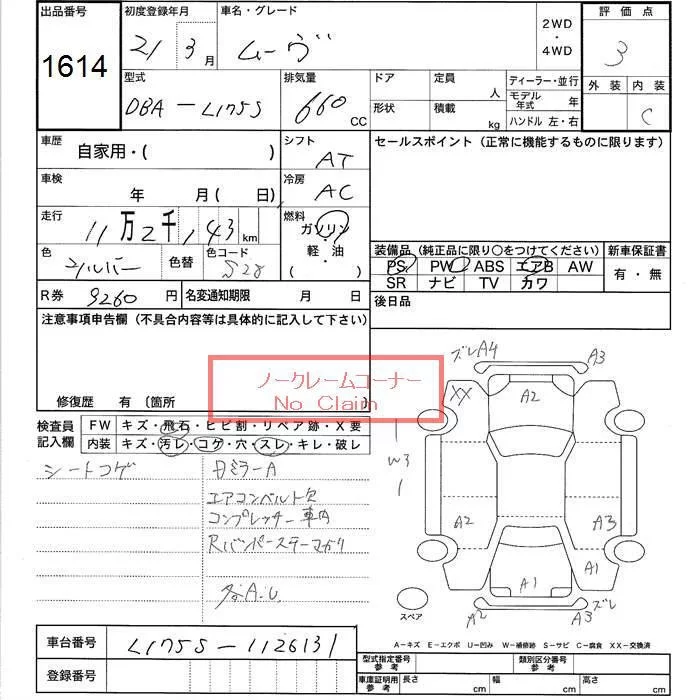 出品番号 初度登録年月 車名・グレード 2WD・4WD 評価点
1614 21 3月 ムーヴ 3
型式 排気量 ドア 定員 人 ディーラー・並行 外装 内装
DBA-L175S 660 CC 形状 積載 kg モデル年式 年 C
ハンドル 左・右
車歴 自家用・( ) シフト AT セールスポイント(正常に機能するものに限ります)
車検 年 月( 日) 冷房 AC
走行 11万2千,143km 燃料 ガソリン
軽・油
( )
色 シルバー 色替 色コード S28
装備品(純正品に限り〇をつけてください) 新車保証書
PS PW ABS エアB AW 有・無
SR ナビ TV カワ
R券 9260円 名変通知期限 月 日 後日品
注意事項申告欄(不具合内容等は具体的に記入して下さい)
ノークレームコーナー
No Claim
修復歴 有 〔箇所
検査員記入欄 FW キズ・飛石・ヒビ割・リペア跡・X要
内装 キズ・汚レ・コゲ・穴・スレ・キレ・破レ
シートコゲ
ミラーA
エアコンベルト欠
コンプレッサー車内
Rバンパーステーマガリ
各A.U.
ズレA4 A3
XX A2
W3
A2 A3
A1 A1
スペア A2 A3ズレ
A-キズ E-エクボ U-凹み W-補修跡 S-サビ C-腐食 XX-交換済
車台番号 L175S-1126131
登録番号
型式指定番号参考 類別区分番号参考
車庫証明用参考 長さ cm 幅 cm 高さ cm